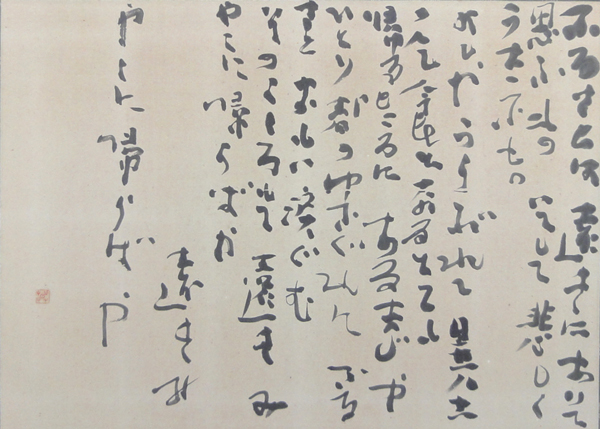 ふるさとは 遠きにありて
思ふもの そして 悲しく
うたふもの
よしやうらぶれて 異土
の 乞食となるとても
帰るところに あるまじや
ひとり 都のゆふぐれに ふる
さと おもひ 涙ぐむ
そのこころもて 遠き み
やこに 帰らばや
遠きみ
やこに 帰らばや